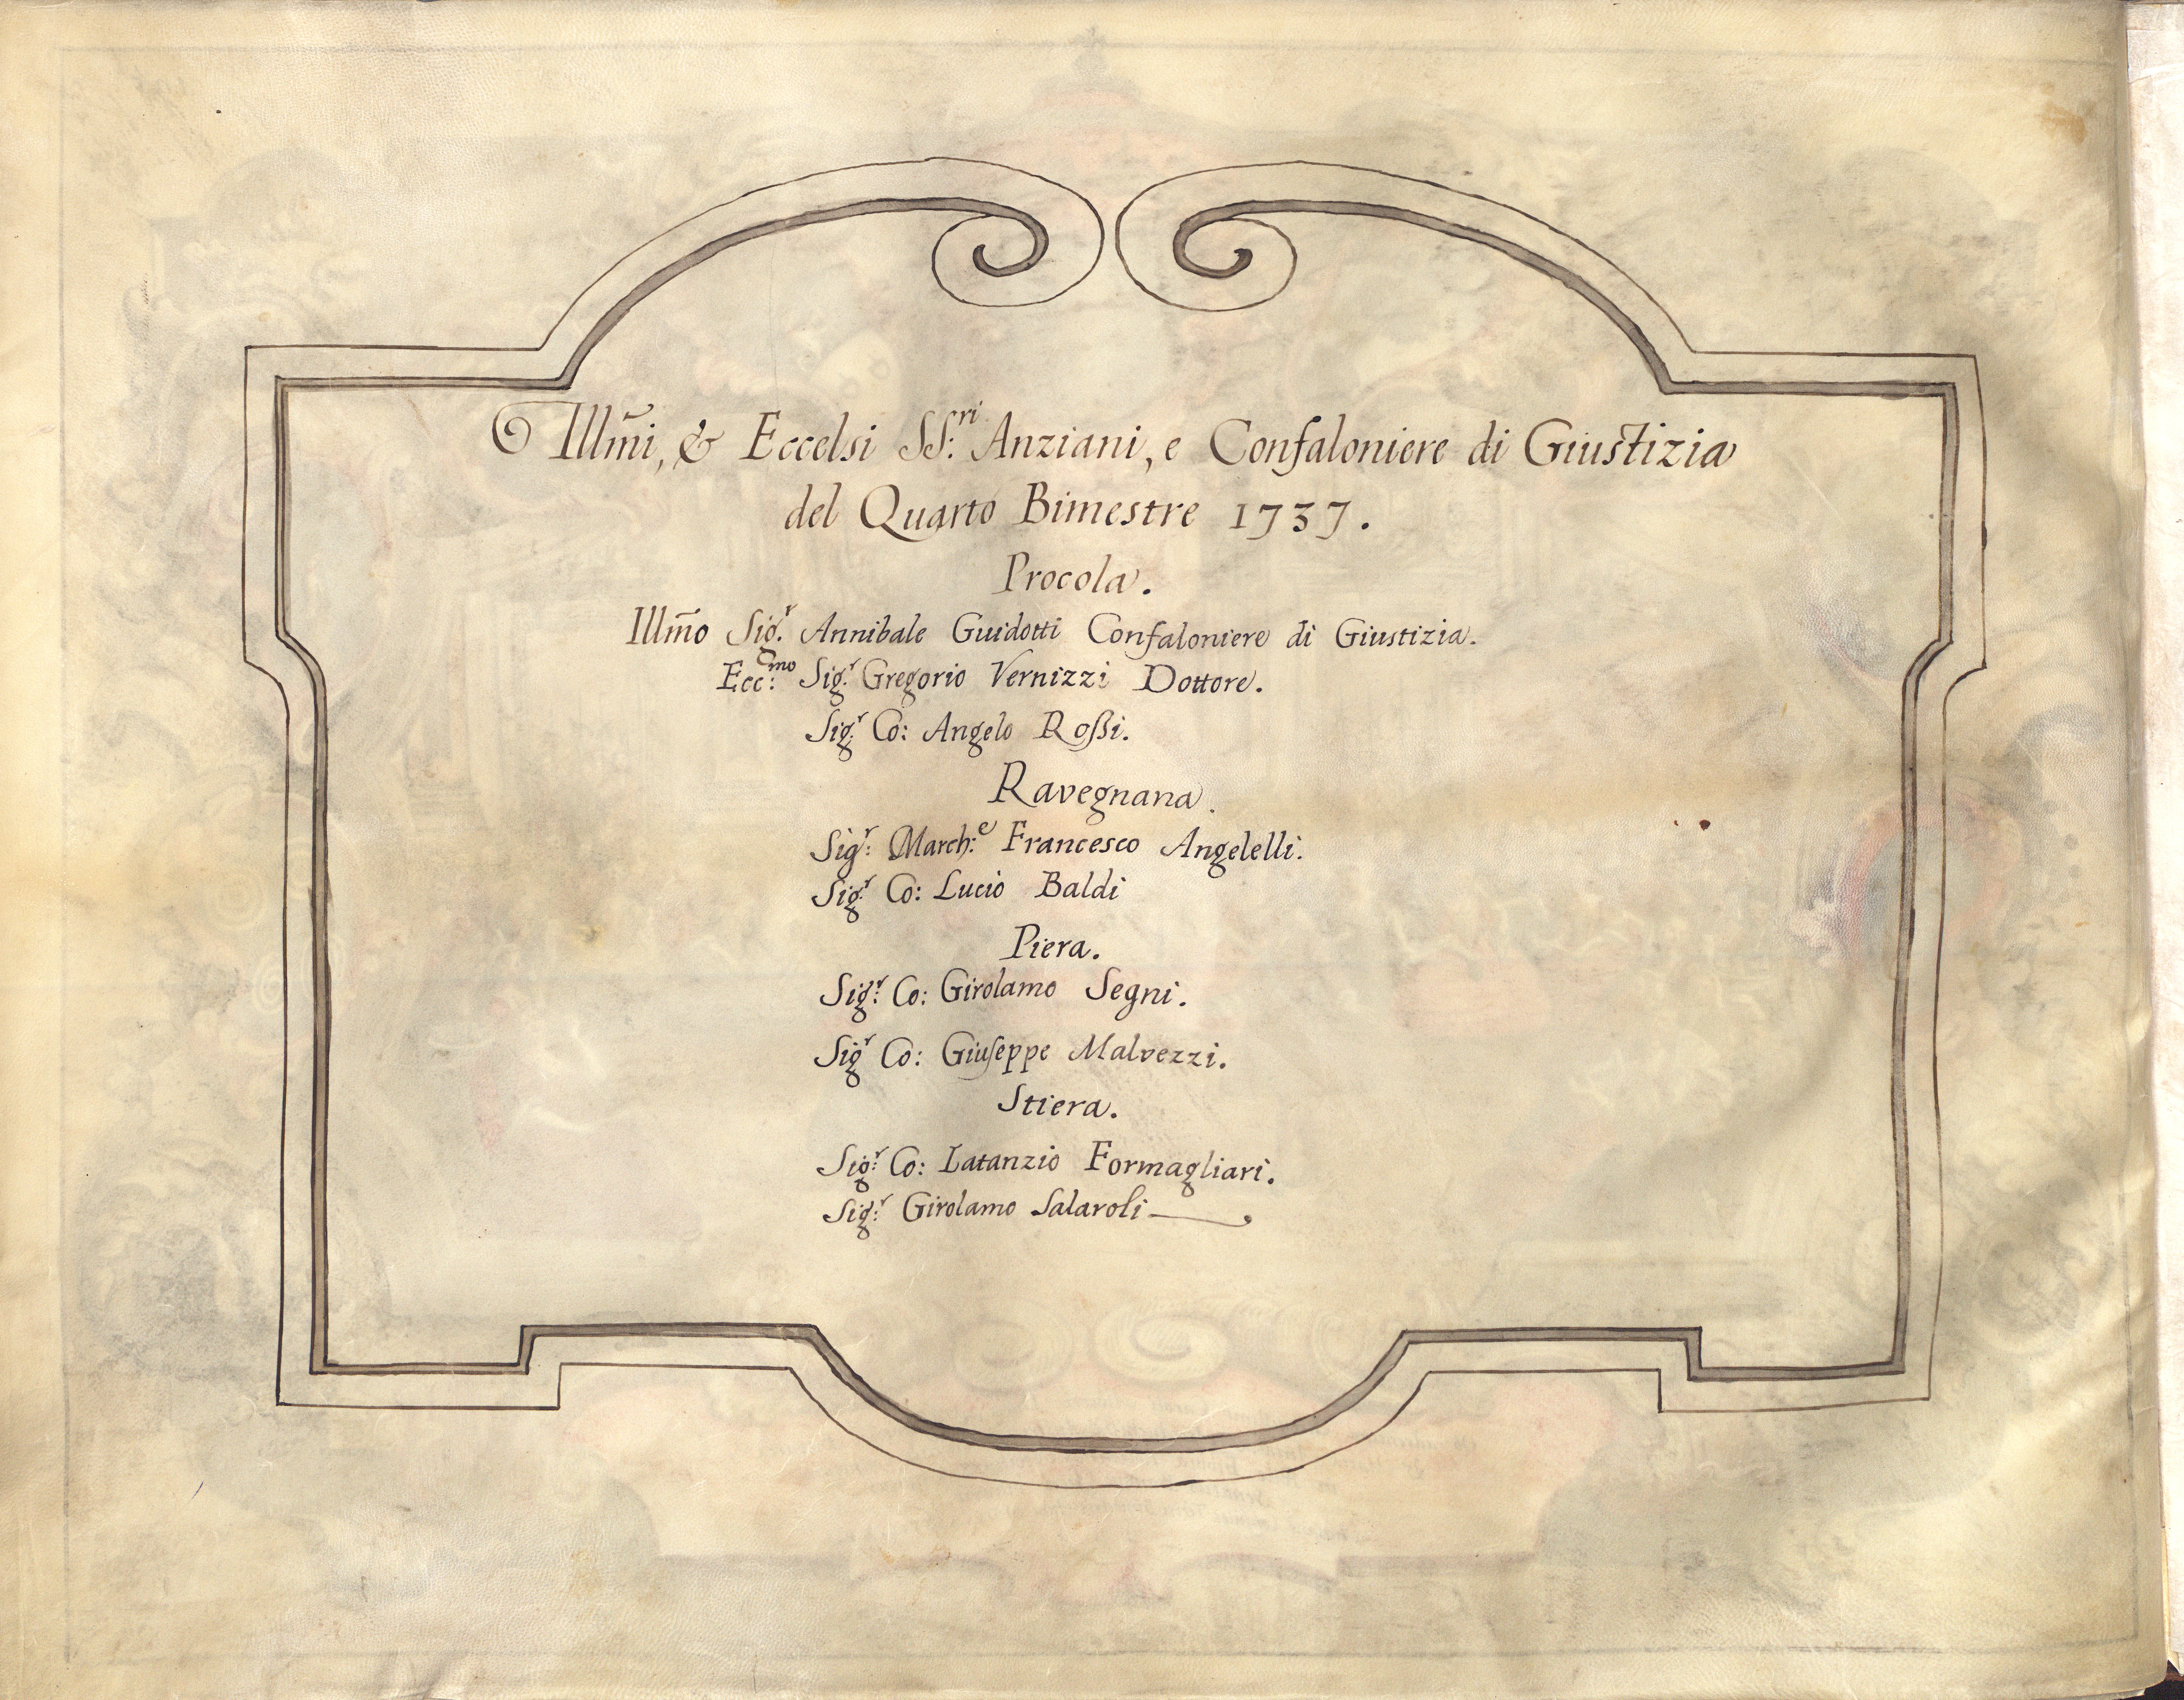 Illm̃i, & Eccelsi SS:ri Anziani, e Confaloniere di Giustizia
del Quarto Bimestre 1737.
Procola.
Illm̃o Sig.r Annibale Guidotti Confaloniere di Giustizia.
Ecc:mo Sig.r Gregorio Vernizzi Dottore.
Sig.r Co: Angelo Roßi.
Ravegnana.
Sig:r March:e Francesco Angelelli.
Sig:r Co: Lucio Baldi
Piera.
Sig:r Co: Girolamo Segni.
Sig.r Co: Giuseppe Malvezzi.
Stiera.
Sig:r Co: Latanzio Formagliari.
Sig:r Girolamo Salaroli